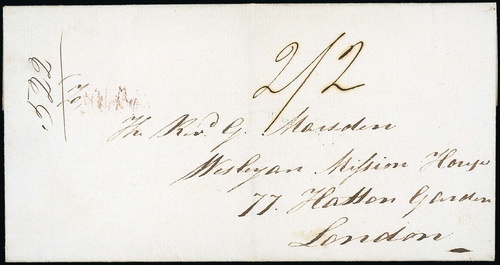 2/2
The Revd. G. Marsden
Wesleyan Mission House
77. Hatton Garden
London
522